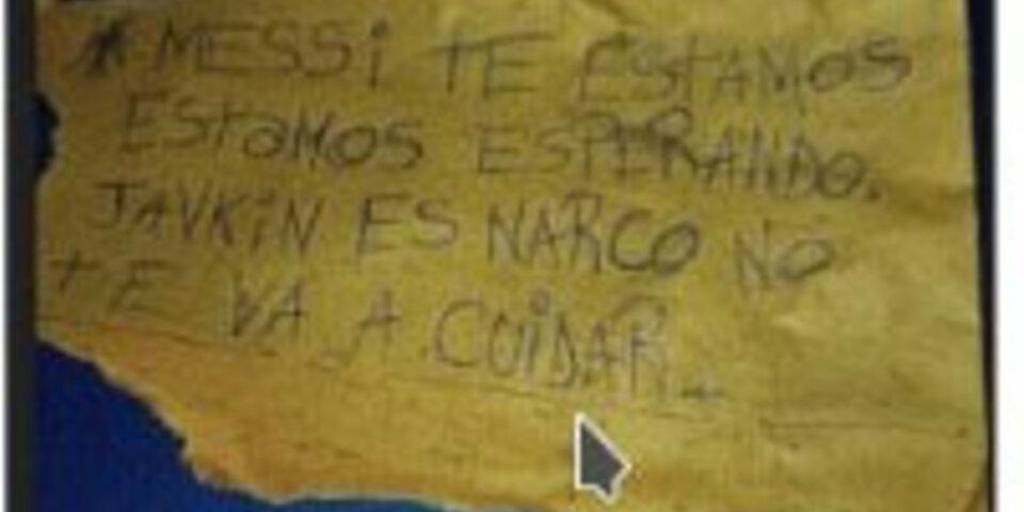 MESSi TE EStAMOS
EStaMOS ESPERANDO.
JAVKiN ES NARCO NO
tE VA A CUiDAR